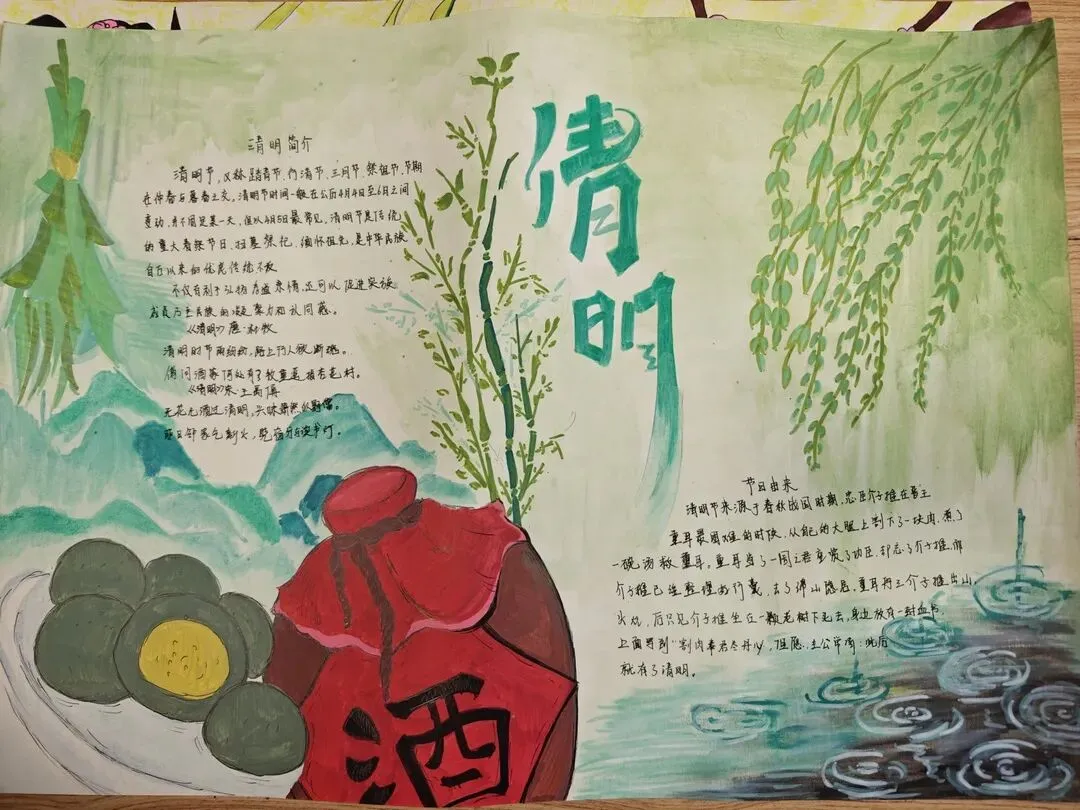 清明
清明简介
清明节,又称踏青节、行清节、三月节、祭祖节,节期
在仲春与暮春之交。清明节时间一般在公历4月4日至6日之间
变动,并不固定某一天,但以4月5日最常见。清明节是传统
的重大春祭节日,扫墓祭祀、缅怀祖先,是中华民族
自古以来的优良传统不
不仅有利于弘扬孝道亲情,还可以促进家族
成员乃至民族的凝聚力和认同感。
《清明》唐·杜牧
清明时节雨纷纷,路上行人欲断魂。
借问酒家何处有?牧童遥指杏花村。
《清明》宋 王禹偁
无花无酒过清明,兴味萧然似野僧。
昨日邻家乞新火,晓窗分与读书灯。
酒
节日由来
清明节来源于春秋战国时期,忠臣介子推在晋主
重耳最困难的时候,从自己的大腿上割下了一块肉,煮了
一碗汤救重耳。重耳当了一国之君重赏了功臣,却忘了介子推,而
介子推已经整理好行囊,去了绵山隐居。重耳将三个介子推出山,
火烧,后只见介子推坐在一颗老树下死去,身边放有一封血书,
上面写到"割肉奉君尽丹心,但愿主公常清明"
就有了清明。